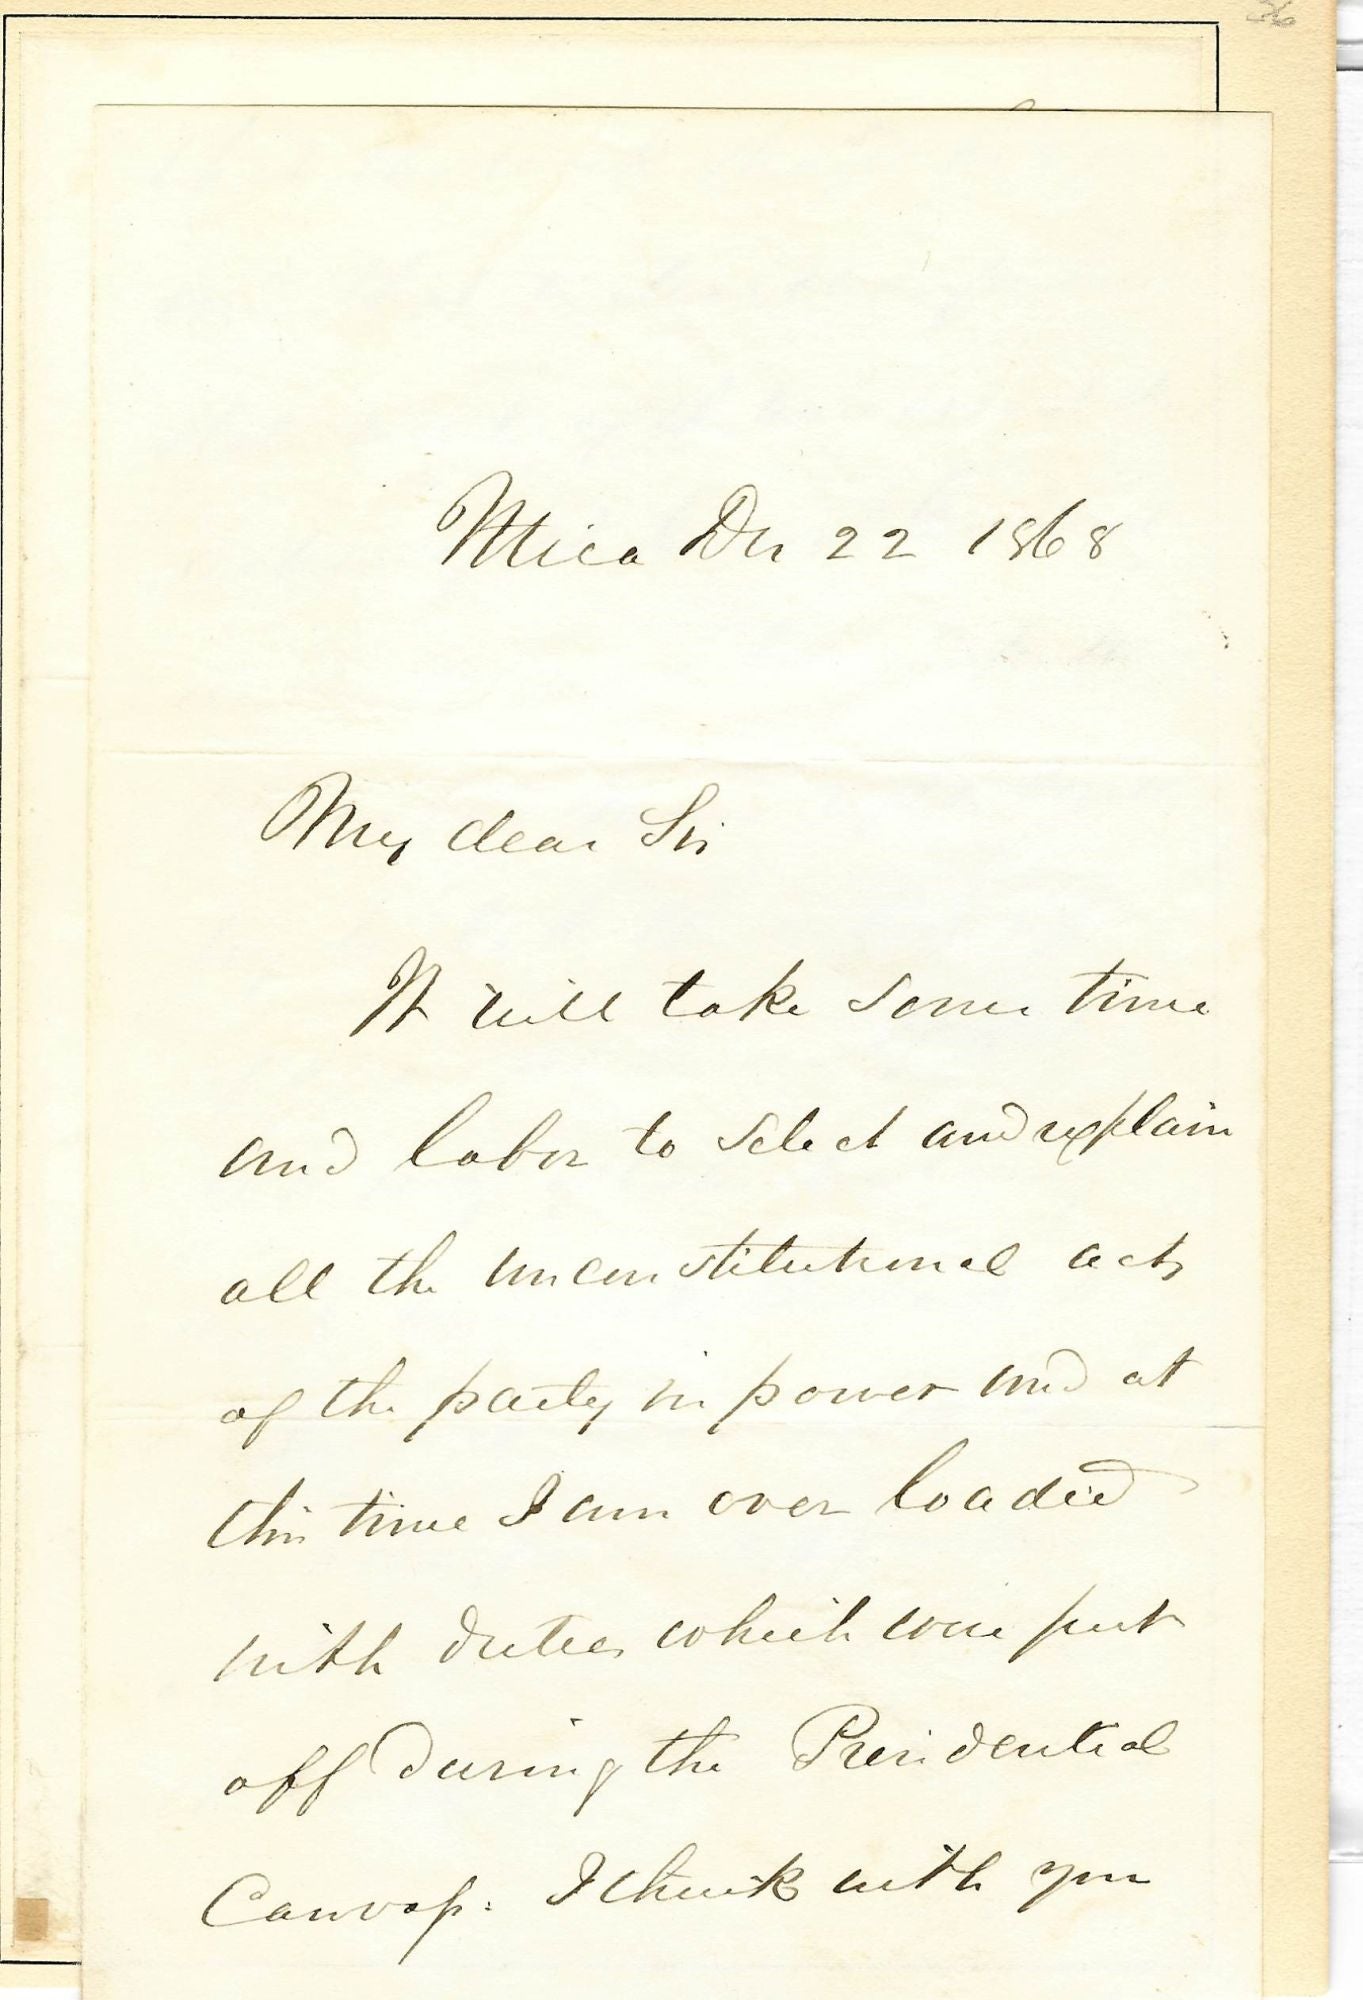 36
Utica Dec 22 1868
My dear Sir
It will take some time
and labor to select and explain
all the unconstitutional acts
of the party in power and at
this time I am over loaded
with duties which were put
off during the Presidential
Canvass. I think with you